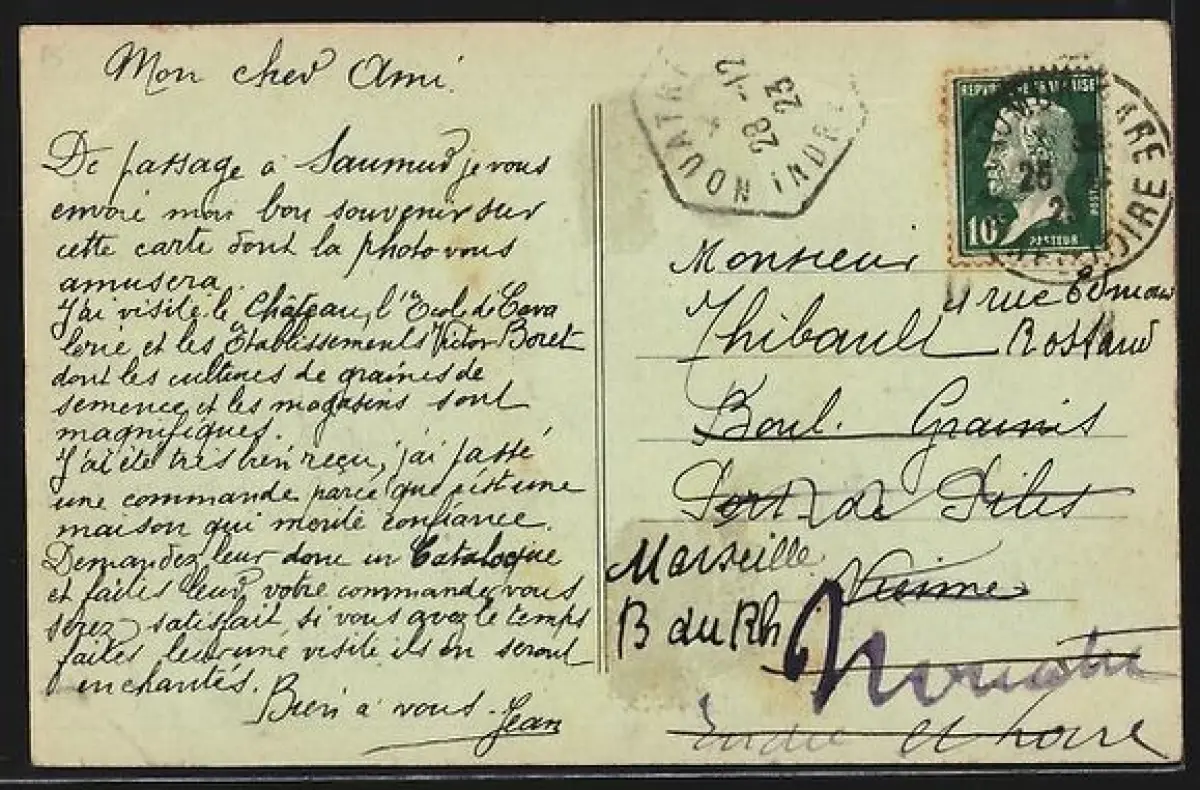 Mon cher Ami.
De passage à Saumur je vous
envoie mon bon souvenir sur
cette carte dont la photo vous
amusera.
J'ai visité le Château, l'Ecole de Cava
lerie et les Etablissements Victor Boret
dont les cultures de graines de
semence et les magasins sont
magnifiques.
J'ai été très bien reçu, j'ai passé
une commande parce que c'est une
maison qui mérite confiance.
Demandez leur donc un Catalogue
et faites leur votre commande, vous
serez satisfait, si vous avez le temps
faites leur une visite ils en seront
enchantés.
Bien à vous. Jean
NOUATR
28 -12
23
INDRE
REPUBLIQUE FRANCAISE
POSTES
10
PASTEUR
25
LOIRE
Monsieur
Thibault
4 rue Edmond
Rostand
Boul. Grains
Port de Piles
Marseille
Vienne
B du Rh
Nouatre
Indre et Loire